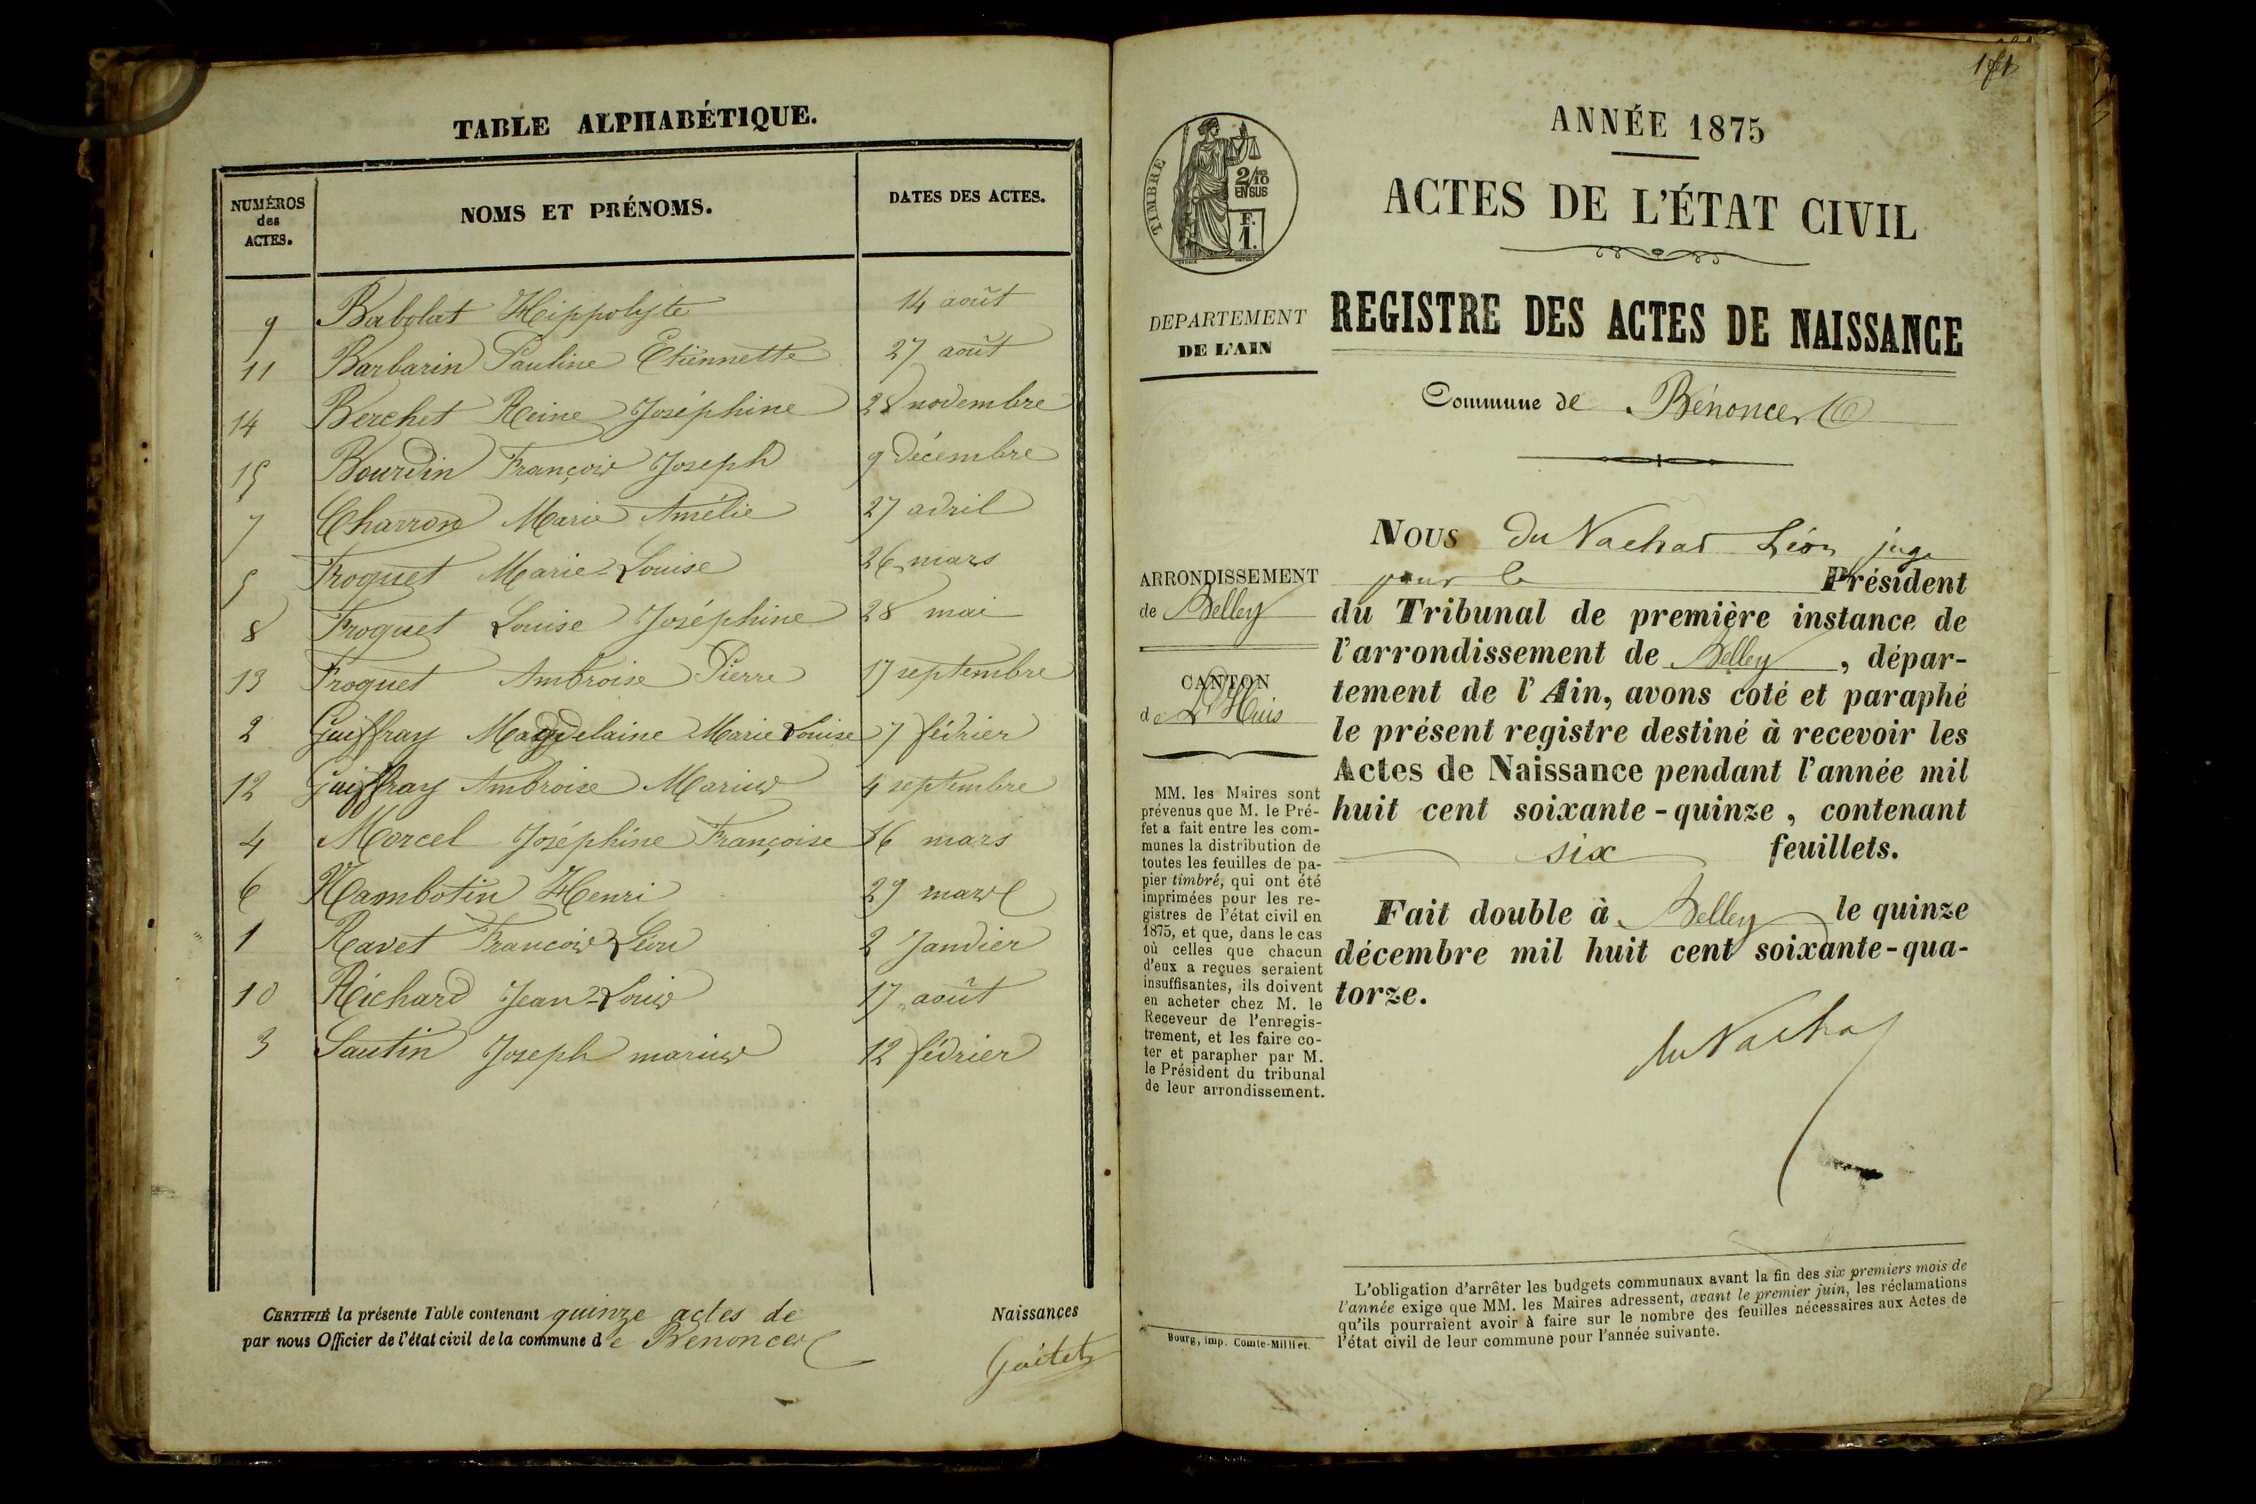 TABLE ALPHABÉTIQUE.
NUMÉROS des ACTES. NOMS ET PRÉNOMS. DATES DES ACTES.
9 Babolat Hippolyte 14 août
11 Barbarin Pauline Etiennette 27 août
14 Berchet Reine Joséphine 28 novembre
15 Bourdin François Joseph 9 décembre
7 Charron Marie Amélie 27 avril
5 Froquet Marie-Louise 26 mars
8 Froquet Louise Joséphine 28 mai
13 Froquet Ambroise Pierre 17 septembre
2 Guiffray Magdelaine Marie Louise 7 février
12 Guiffray Ambroise Marius 4 septembre
4 Morcel Joséphine Françoise 16 mars
6 Nambotin Henri 29 mars
1 Ravet François Léon 2 Janvier
10 Richard Jean-Louis 17 août
3 Sautin Joseph marius 12 février
CERTIFIÉ la présente Table contenant quinze actes de Naissances
par nous Officier de l'état civil de la commune de Bénonces
ANNÉE 1875
ACTES DE L'ÉTAT CIVIL
TIMBRE
2/10 EN SUS
F. 1.
REGISTRE DES ACTES DE NAISSANCE
DEPARTEMENT
DE L'AIN
Commune de Bénonces
ARRONDISSEMENT
de Belley
CANTON
de L'Huis
MM. les Maires sont
prévenus que M. le Pré-
fet a fait entre les com-
munes la distribution de
toutes les feuilles de pa-
pier timbré, qui ont été
imprimées pour les re-
gistres de l'état civil en
1875, et que, dans le cas
où celles que chacun
d'eux a reçues seraient
insuffisantes, ils doivent
en acheter chez M. le
Receveur de l'enregis-
trement, et les faire co-
ter et parapher par M.
le Président du tribunal
de leur arrondissement.
Bourg, imp. Comte-Milliet.
NOUS du Nachat Léon juge
pour le Président
du Tribunal de première instance de
l'arrondissement de Belley, dépar-
tement de l'Ain, avons coté et paraphé
le présent registre destiné à recevoir les
Actes de Naissance pendant l'année mil
huit cent soixante-quinze, contenant
six feuillets.
Fait double à Belley le quinze
décembre mil huit cent soixante-qua-
torze.
du Nachat
L'obligation d'arrêter les budgets communaux avant la fin des six premiers mois de
l'année exige que MM. les Maires adressent, avant le premier juin, les réclamations
qu'ils pourraient avoir à faire sur le nombre des feuilles nécessaires aux Actes de
l'état civil de leur commune pour l'année suivante.